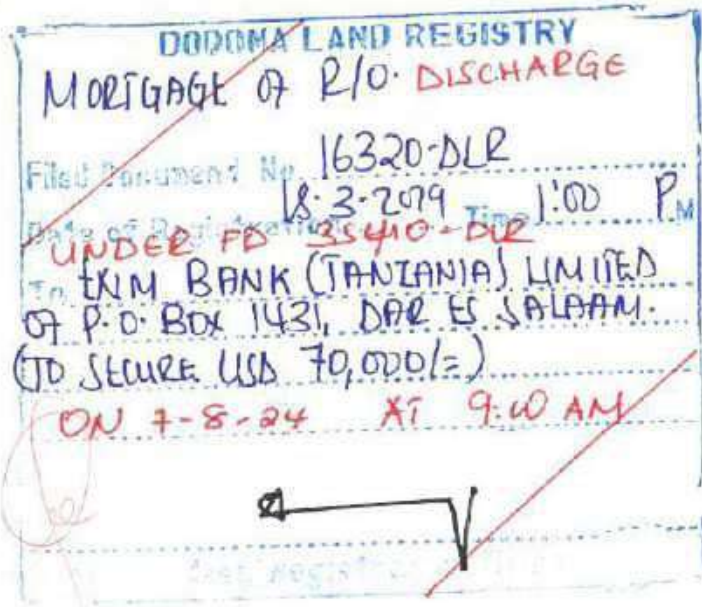 DODOMA LAND REGISTRY
MORTGAGE OF R/O. DISCHARGE
Filed Document No. 16320-DLR
Date of Registration 18.3.2019 Time 1:00 PM
UNDER FD 35410-DLR
To I&M BANK (TANZANIA) LIMITED
OF P.O. BOX 1431, DAR ES SALAAM.
(TO SECURE USD 70,000/=)
ON 7-8-24 AT 9:00 AM